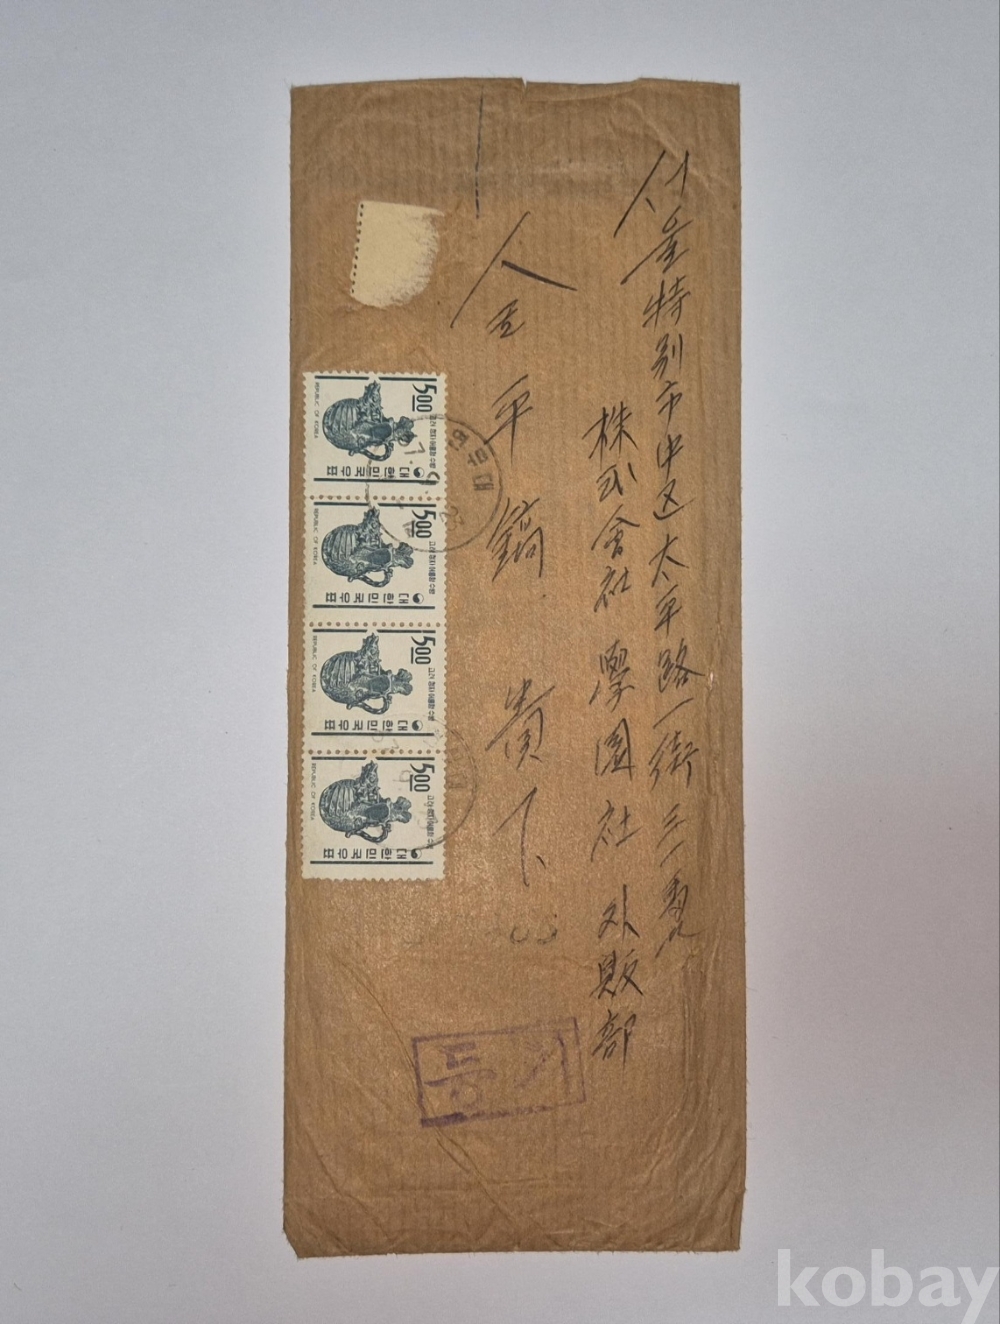 서울特別市中区太平路一街三一番
株式會社 學園社 外販部
金平鎬 貴下
500
대한민국우표
REPUBLIC OF KOREA
500
대한민국우표
REPUBLIC OF KOREA
500
대한민국우표
REPUBLIC OF KOREA
500
대한민국우표
REPUBLIC OF KOREA
등기
kobay